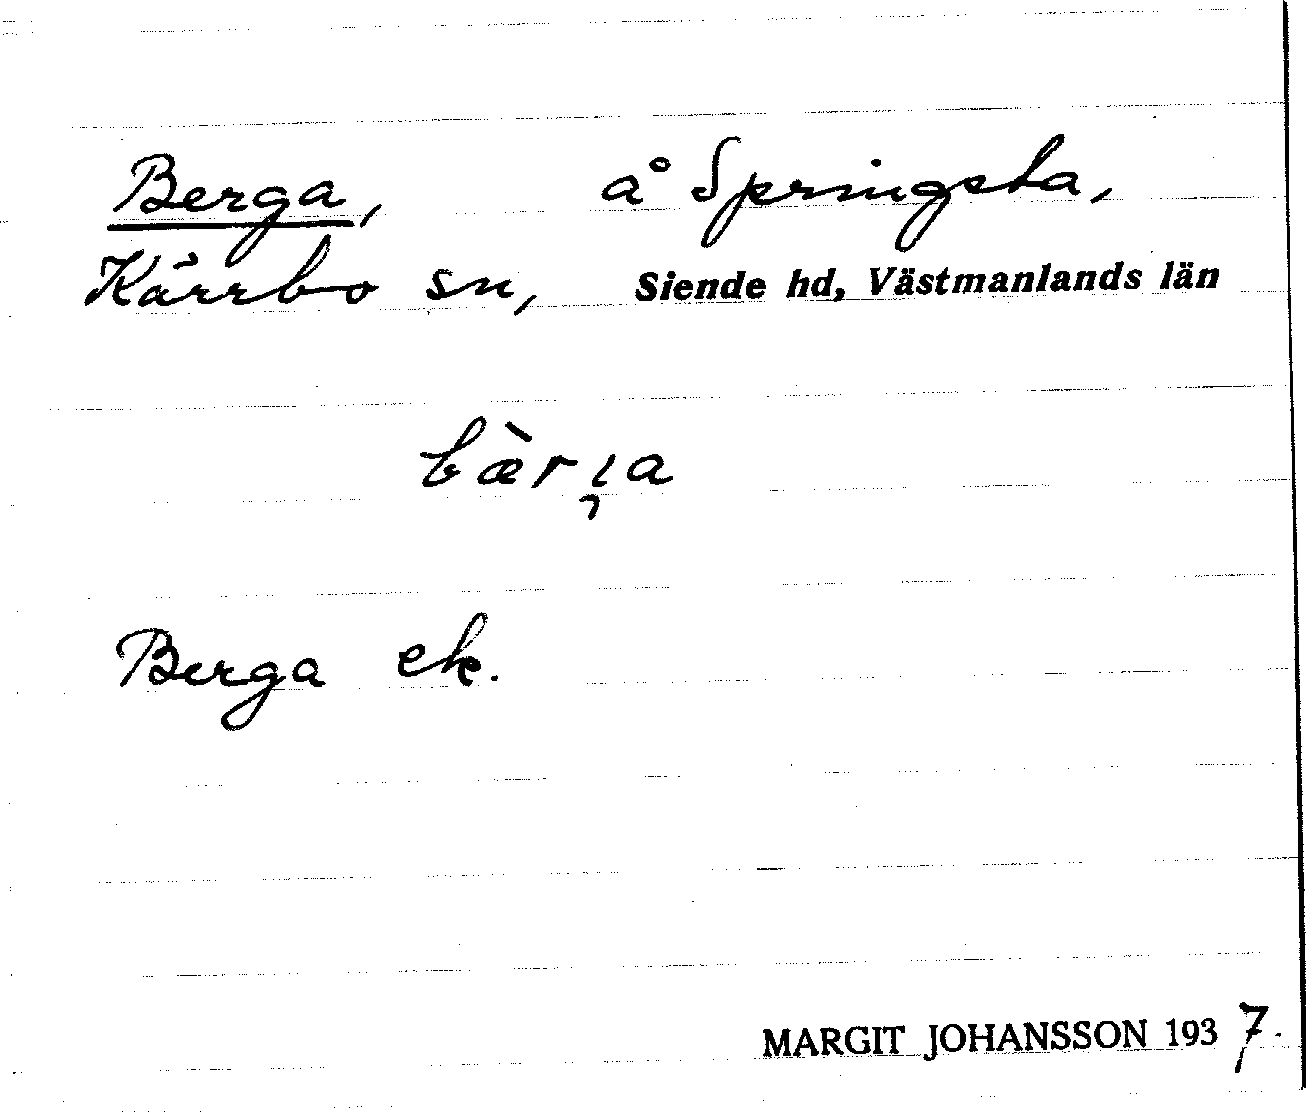 Berga, å Springsta,
Kärrbo sn, Siende hd, Västmanlands län
bæ̀ri̯a
Berga ek.
MARGIT JOHANSSON 1937.